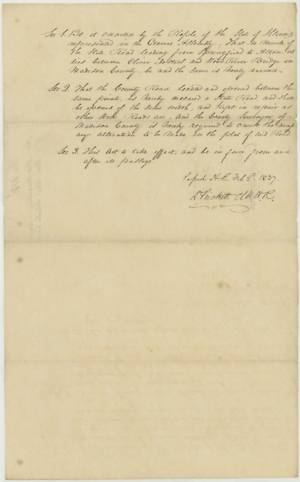 Sec 1. Be it enacted by the People of the State of Illinois
represented in the General Assembly, That so much of
the State Road leading from Springfield to Alton as
lies between Oliver and Wood River Bridge in
Madison County, be and the same is hereby vacated.
Sec 2. That the County Road located and opened between the
same points, is hereby declared a State Road and shall
be opened of the same width, and kept in repair as
other State Roads are, and the County Surveyor of
Madison County is hereby required to
any alteration to be made in the plat of said Road
Sec 3. This Act to take effect, and be in force from and
after its passage
Passed H.R. Feb 1837.
Prickett C.H.R.